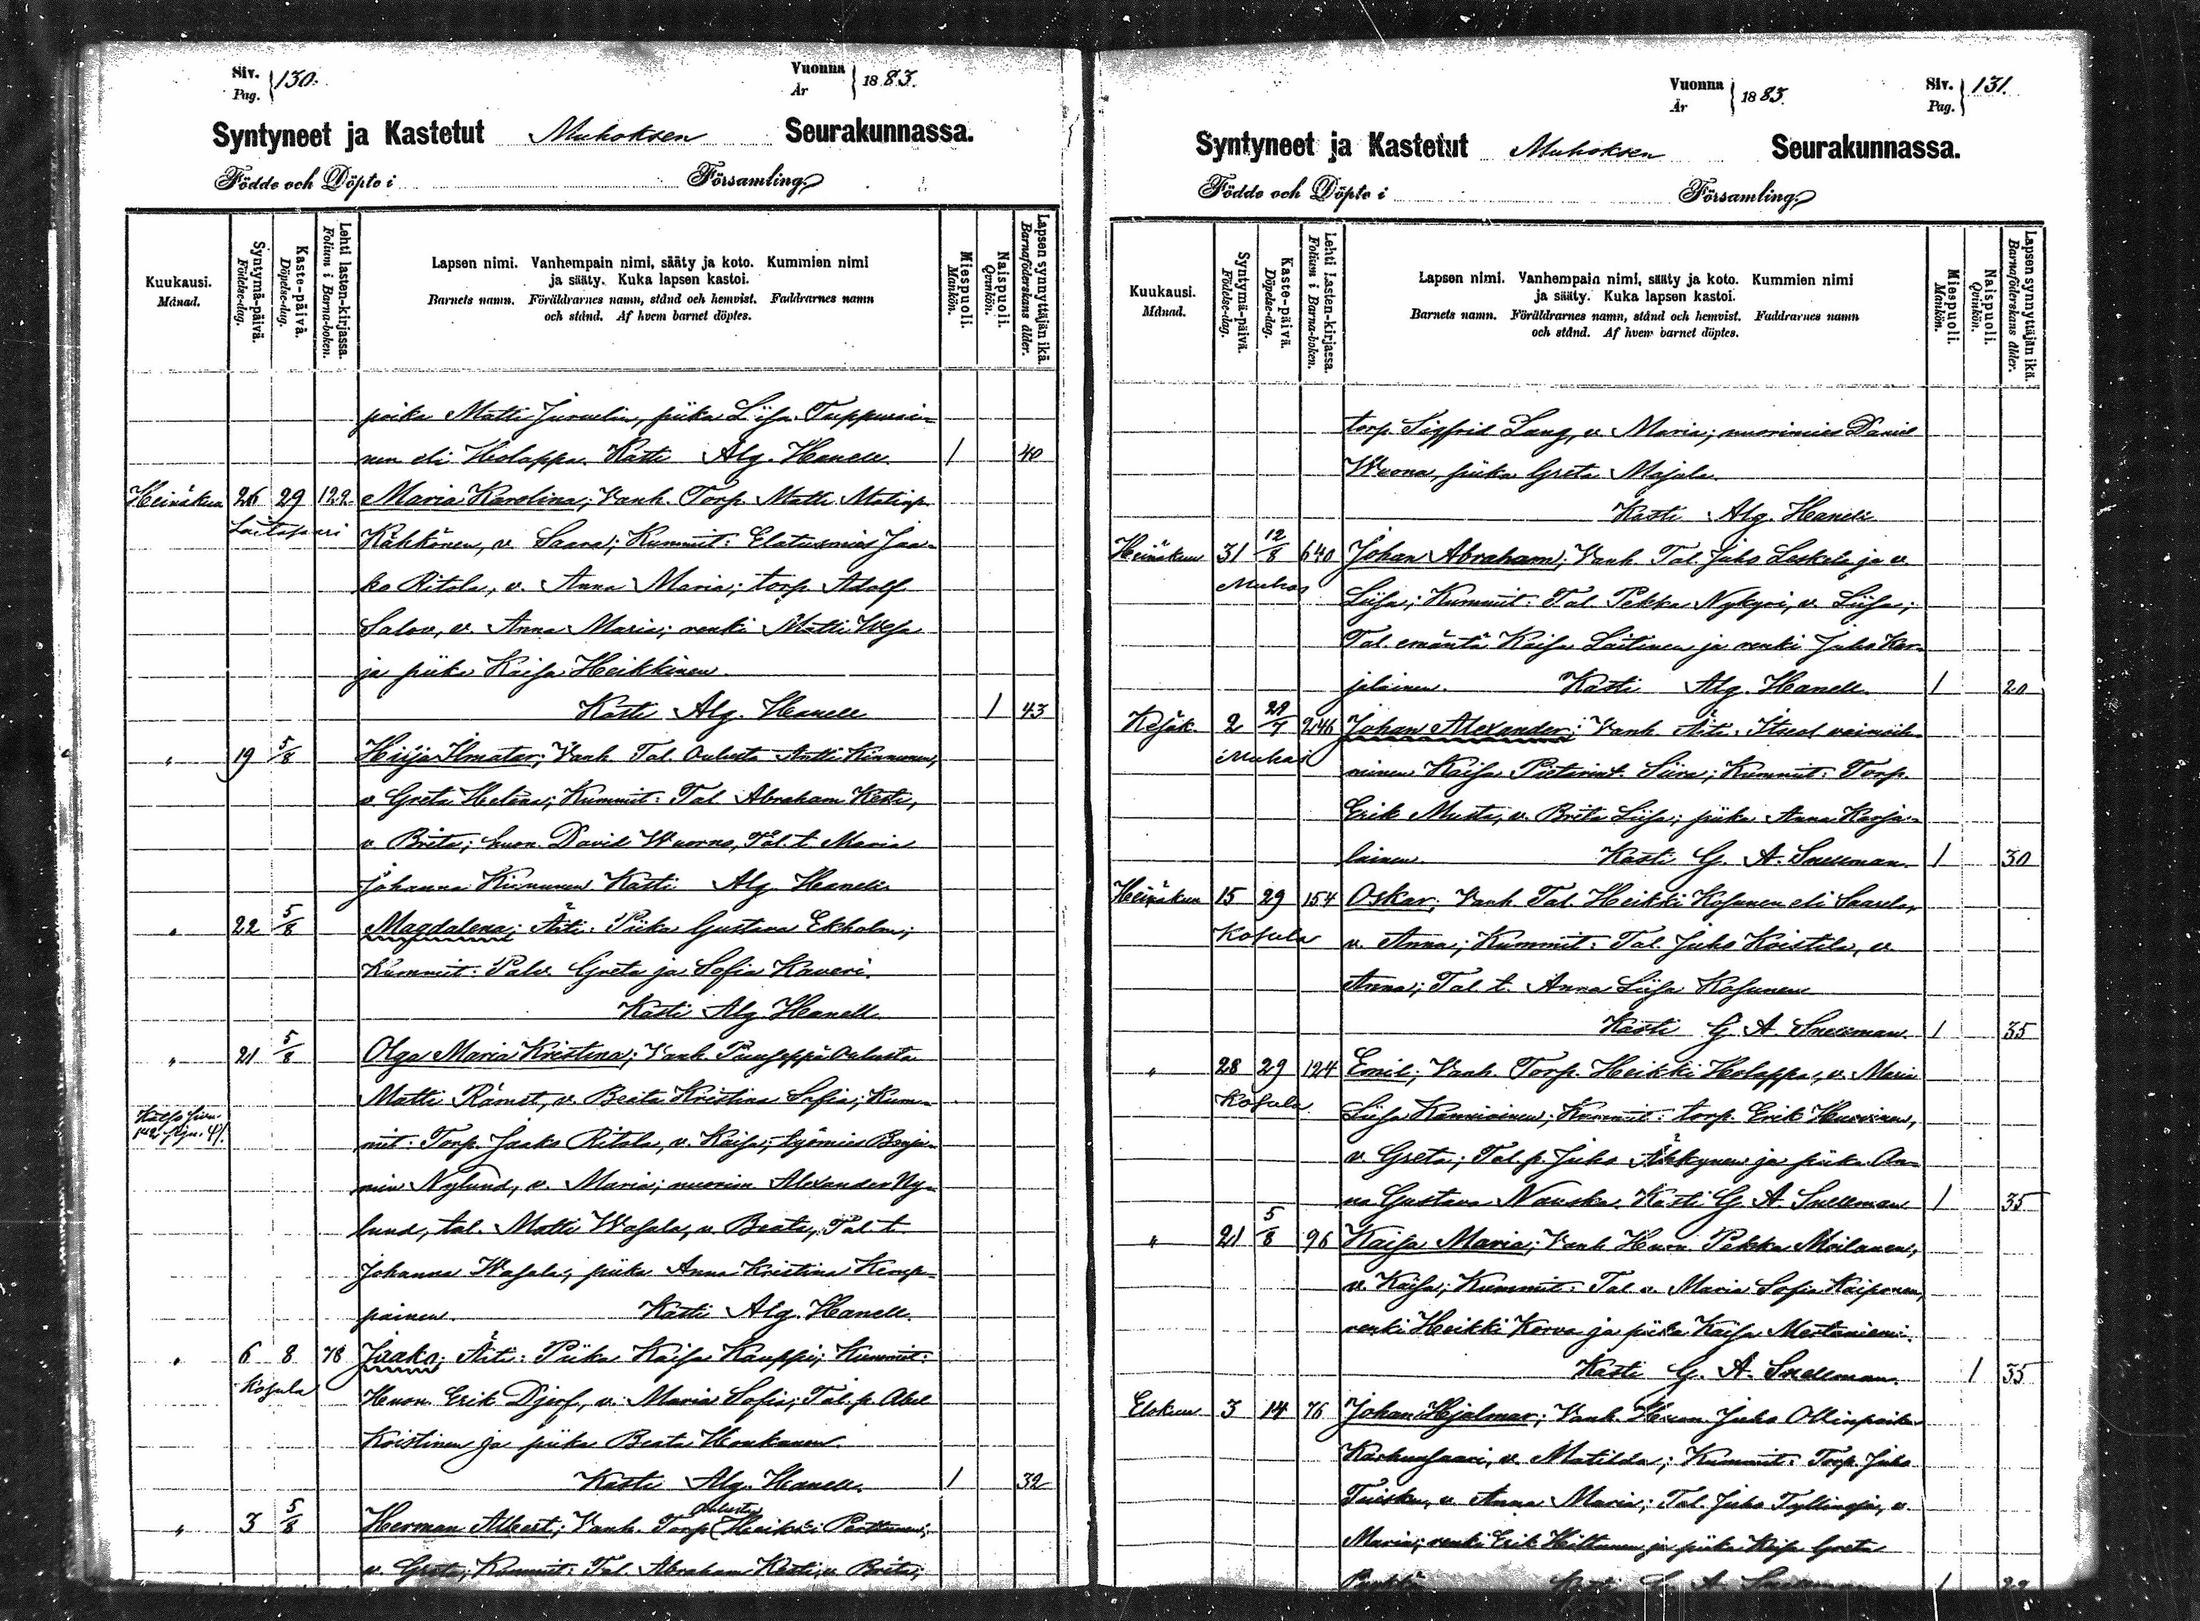 Siv.
Pag. 130.
Vuonna
År 1883.
Syntyneet ja Kastetut Muhoksen Seurakunnassa.
Födde och Döpte i Församling.
Kuukausi.
Månad.
Syntymä-päivä.
Födelse-dag.
Kaste-päivä.
Döpelse-dag.
Lehti lasten-kirjassa.
Folium i Barna-boken.
Lapsen nimi. Vanhempain nimi, sääty ja koto. Kummien nimi
ja sääty. Kuka lapsen kastoi.
Barnets namn. Föräldrarnes namn, stånd och hemvist. Faddrarnes namn
och stånd. Af hvem barnet döptes.
Miespuoli.
Mankön.
Naispuoli.
Qvinkön.
Lapsen synnyttäjän ikä.
Barnaföderskans ålder.
poika Matti Juvelin, piika Lisa Tuppurai-
nen eli Holappa. Kasti Alg. Hanell. 1 40
Heinäkuu 26 29 122 Maria Karolina; Vanh. Torp. Matti Matinp.
Laitasaari Kähkönen, v. Saara; Kummit: Elatusmies Jaa-
ko Ritola, v. Anna Maria; torp. Adolf
Salov, v. Anna Maria; renki Matti Wesa
ja piika Kaisa Heikkinen.
Kasti Alg. Hanell 1 43
" 19 5/8 Hilja Ilmatar; Vanh. Tal. Oulusta Antti Kinnunen,
v Greta Helena; Kummit: Tal Abraham Kesti,
v Brita; huon. David Wuorno, Tal. t. Maria
Johanna Kinnunen Kasti Alg. Hanell
" 22 5/8 Magdalena; Äiti: Piika Gustava Ekholm;
Kummit: Palv. Greta ja Sofia Kaveri.
Kasti Alg Hanell
" 21 5/8 Olga Maria Kristina; Vanh. Puuseppä Oulusta
Matti Rämet, v. Beita Kristina Sofia; Kum-
Katso sivu
142
mit: Torp. Jaako Ritola, v. Kaisa; työmies Benja-
min Nylund, v. Maria; nuorim Alexander Ny-
lund, tal. Matti Wasala, v Beata, Tal. t.
Johanna Wasala; piika Anna Kristina Kemp-
painen. Kasti Alg. Hanell.
" 6 8 78 Jaako; Äiti: Piika Kaisa Kauppi; Kummit:
Kosula Huon. Erik Djerf, v. Maria Sofia; Tal. p. Abel
Koistinen ja piika Beata Honkanen.
Kasti Alg. Hanell. 1 32
Oulusta
" 3 5/8 Herman Albert; Vanh. Torp. Heikki Perttunen;
v. Greta; Kummit: Tal. Abraham Kesti, v. Brita;
Vuonna
År 1883.
Siv.
Pag. 131.
Syntyneet ja Kastetut Muhoksen Seurakunnassa.
Födde och Döpte i Församling.
Kuukausi.
Månad.
Syntymä-päivä.
Födelse-dag.
Kaste-päivä.
Döpelse-dag.
Lehti Lasten-kirjassa.
Folium i Barna-boken.
Lapsen nimi. Vanhempain nimi, sääty ja koto. Kummien nimi
ja sääty. Kuka lapsen kastoi.
Barnets namn. Föräldrarnes namn, stånd och hemvist. Faddrarnes namn
och stånd. Af hvem barnet döptes.
Miespuoli.
Mankön.
Naispuoli.
Qvinkön.
Lapsen synnyttäjän ikä.
Barnaföderskans ålder.
torp. Sigfrid Lang, v. Maria; nuorimies Daniel
Wuorna, piika Greta Majala.
Kasti Alg. Hanell
Heinäkuu 31 12/8 640 Johan Abraham; Vanh. Tal. Juho Leskelä ja v.
Muhos Liisa; Kummit: Tal Pekka Nykyri, v. Liisa;
Tal. emäntä Kaisa Laitinen ja renki Juho Kar-
jalainen. Kasti Alg. Hanell. 1 20
Kesäk. 2 29/7 246 Johan Alexander; Vanh. Äiti: Itsel. vaimoih-
Muhos minen Kaisa Pietarint. Siira; Kummit: Torp.
Erik Musta, v. Brita Liisa; piika Anna Karja-
lainen Kasti G. A. Snellman. 1 30
Heinäkuu 15 29 154 Oskar; Vanh Tal. Heikki Kosunen eli Saarela,
Kosula v. Anna; Kummit: Tal. Juho Koistila, v.
Anna; Tal. t. Anna Liisa Kosunen
Kasti G. A. Snellman 1 35
" 28 29 124 Emil; Vanh Torp. Heikki Holappa, v. Maria
Kosula. Liisa Kanniainen; Kummit: torp. Erik Huovinen,
v. Greta; Tal. p. Juho Äkkynen ja piika An-
na Gustava Nauska. Kasti G. A. Snellman 1 35
" 21 5/8 96 Kaisa Maria; Vanh Huon. Pekka Moilanen,
v. Kaisa; Kummit: Tal v. Maria Sofia Kaiponen,
renki Heikki Korva ja piika Kaisa Mertaniemi.
Kasti G. A. Snellman. 1 35
Elokuu 3 14 76 Johan Hjalmar; Vanh. Huon. Juho Ollinpoika
Karhunsaari, v. Matilda; Kummit: Torp. Juho
Tuisku, v. Anna Maria; Tal. Juho Tyllinoja, v.
Maria; renki Erik Hiltunen ja piika Kaisa Greta
G. A. Snellman 1